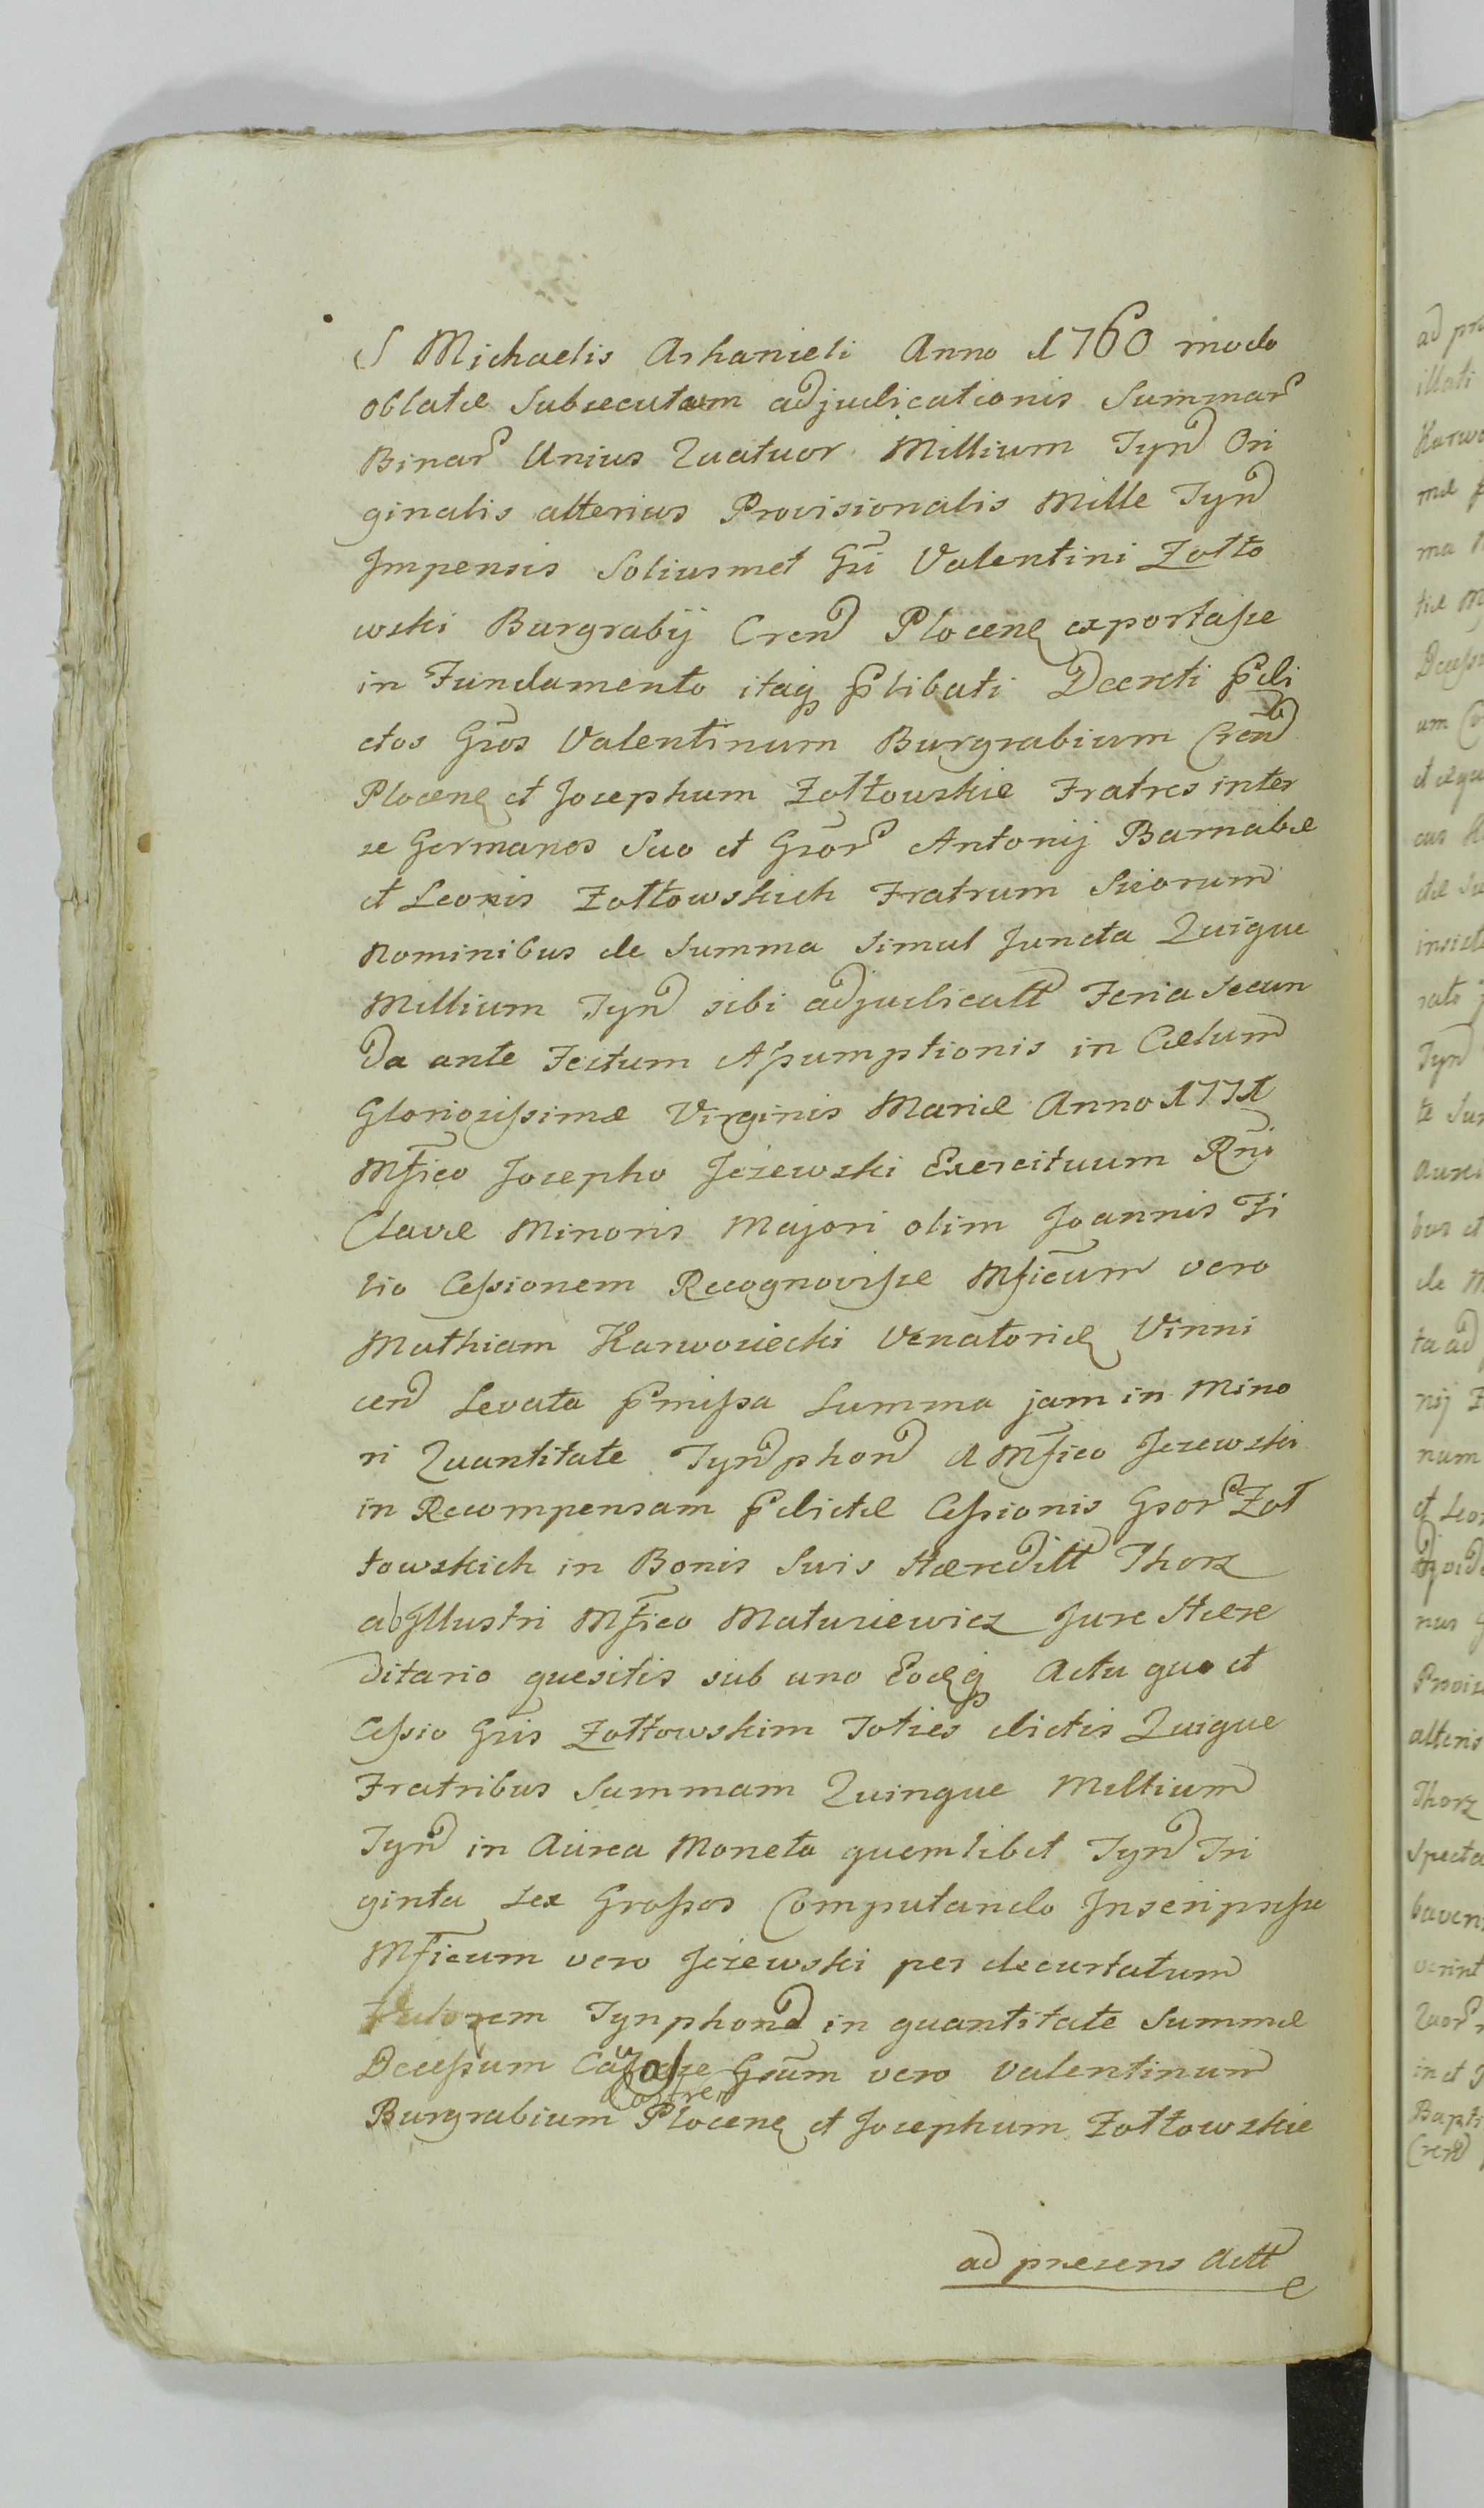 S Michaelis Arhanieli Anno 1760 modo
oblatæ Subsecutam adjudicationis Summar
Binar Unius Quatuor Millium Tyn Ori
ginalis alterius Provisionalis Mille Tyn
Impensis Soliusmet Gsi Valentini Zołto
wski Burgrabij Cren Plocen exportasse
in Fundamento itaq plibati Decreti pdi
ctos Gsos Valentinum Burgrabium Cren
Plocen et Josephum Zołtowskie Fratres inter
se Germanos Suo et Gsor Antonij Barnabæ
et Leonis Zołtowskich Fratrum Suorum
Nominibus de Summa Simul Juncta Quique
Millium Tyn sibi adjudicatt Feria Secun
da ante Festum Assumptionis in Cælum
Gloriosissimæ Virginis Mariæ Anno 1771
Mfico Josepho Jezewski Exercituum Rni
Clavæ Minoris Majori olim Joannis Fi
lio Cessionem Recognovisse Mficum vero
Mathiam Karwosiecki Venatorie Vinni
cen Levata pmissa Summa jam in Mino
ri Quantitate Tynphon a Mfico Jezewski
in Recompensam pdictæ Cessionis Gsor Zoł
towskich in Bonis Suis Hæreditt Thorz
ab Illustri Mfico Matusiewicz Jure Hære
ditario quesitis sub uno Eodeq Actu quo et
Cessio Gsis Zołtowskim Toties dictis Quique
Fratribus Summam Quinque Millium
Tyn in Aurea Moneta quemlibet Tyn Tri
ginta sex Grossos Computando Inscripsisse
Mficum vero Jezewski per decurtatum
Valorem Tynphon in quantitate Summæ
Decessum Gsum vero Valentinum
Castren
Burgrabium Plocen et Josephum Zołtowskie
ad presens Actt
ad pr
illati
Karwo
mæ p
ma
tiæ M
Decess
um Co
et æqu
cas
dæ Su
insiel
rato
Tyn
te Su
aure
bus et
de M
ta ad
nij Z
num
et Leo
nus
Provis
alteris
Thorz
Specta
baven
verint
Quor
in et
Bapti